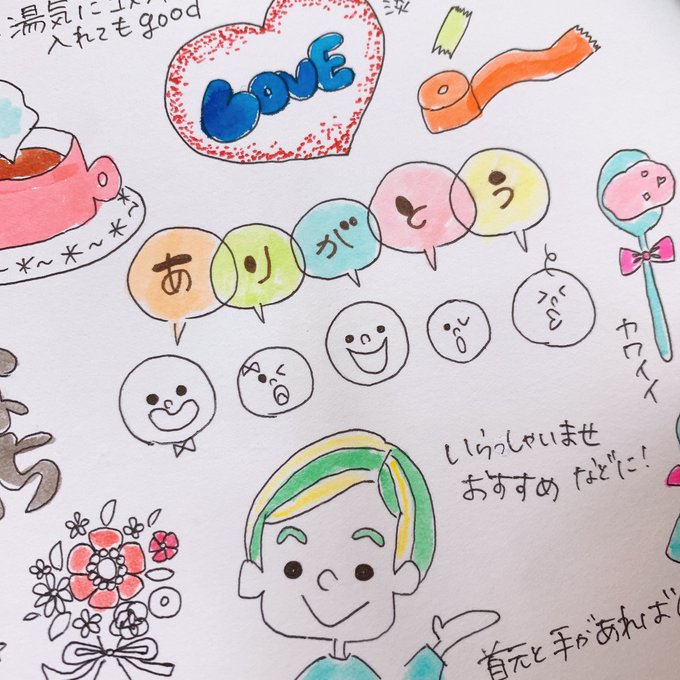 湯気に
入れてもgood
LOVE
ありがとう
カワイイ
いらっしゃいませ
おすすめ などに!
首元と手があれば